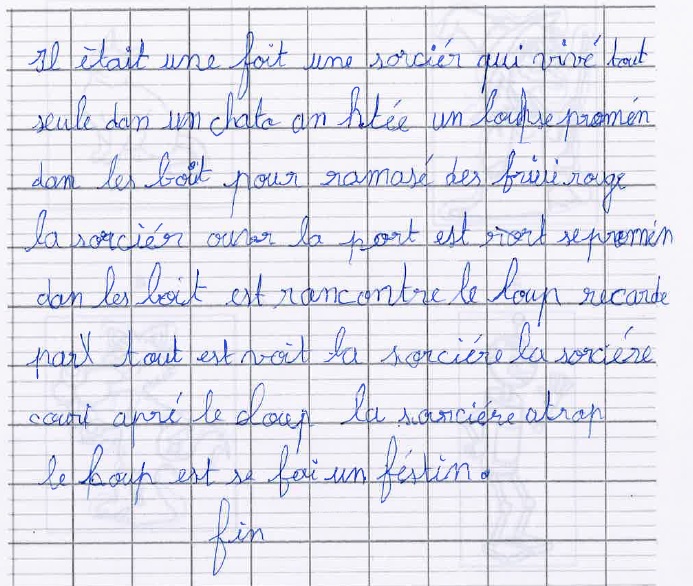 Il était une foit une sorciér qui vivé tout
seule dan un chato an htée un loup se promén
dan les boit pour ramasé des frúsi rouge
la sorciér ouvr la port est sort se promén
dan les boit est rancontre le loup recarde
part tout est voit la sorciére la sorciére
couri apré le cloup la sorciére atrap
le houp est se fai un féstin.
fin